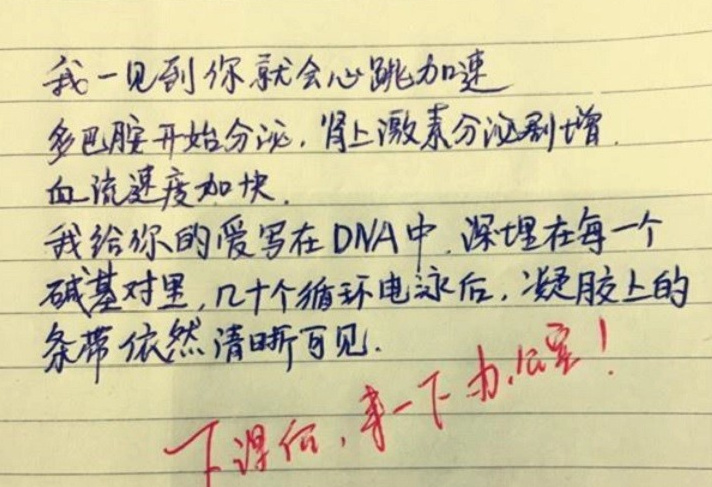 我一见到你就会心跳加速
多巴胺开始分泌，肾上激素分泌剧增.
血流速度加快.
我给你的爱写在DNA中.深埋在每一个
碱基对里，几十个循环电泳后，凝胶上的
条带依然清晰可见.
下课后，来一下办公室！